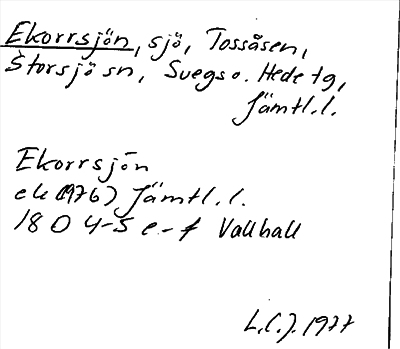 Ekorrsjön, sjö, Tossåsen,
Storsjö sn, Svegs o. Hede tg,
Jämtl.l.
Ekorrsjön
ek (1976) Jämtl.l.
18 D 4-5 e-f Vallhall
L.C.J. 1977